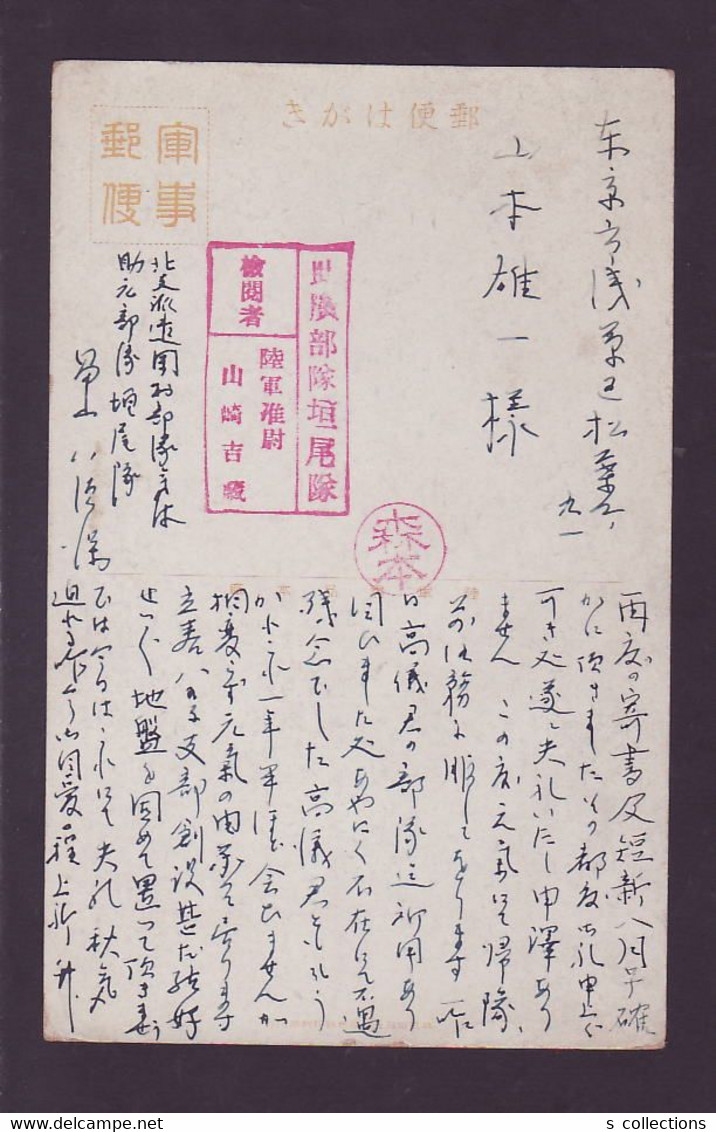 郵便はがき
軍事
郵便
東京市浅草区松葉町
九一
山本雄一様
部隊垣尾隊
検閲者
陸軍准尉
山崎吉蔵
森本
北支派遣田村部隊気付
助元部隊垣尾隊
再度の寄書及短新八月号確
かに頂きましたその都度御礼申上ぐ
可き処遂に失礼いたし申訳あり
ません この度元気にて帰隊、
軍務に服してをります
日高儀君の部隊迄御用あり
伺ひました処あやにく不在にて不遇
残念でした高儀君とも
かれこれ一年半ほど会ひませんが
相変らず元気の由承って居ります
支部創設甚だ結好
地盤を固めて置いて頂きませう
では今日はこれにて失礼 秋気
迫る 御自愛の程上祈り
s collections